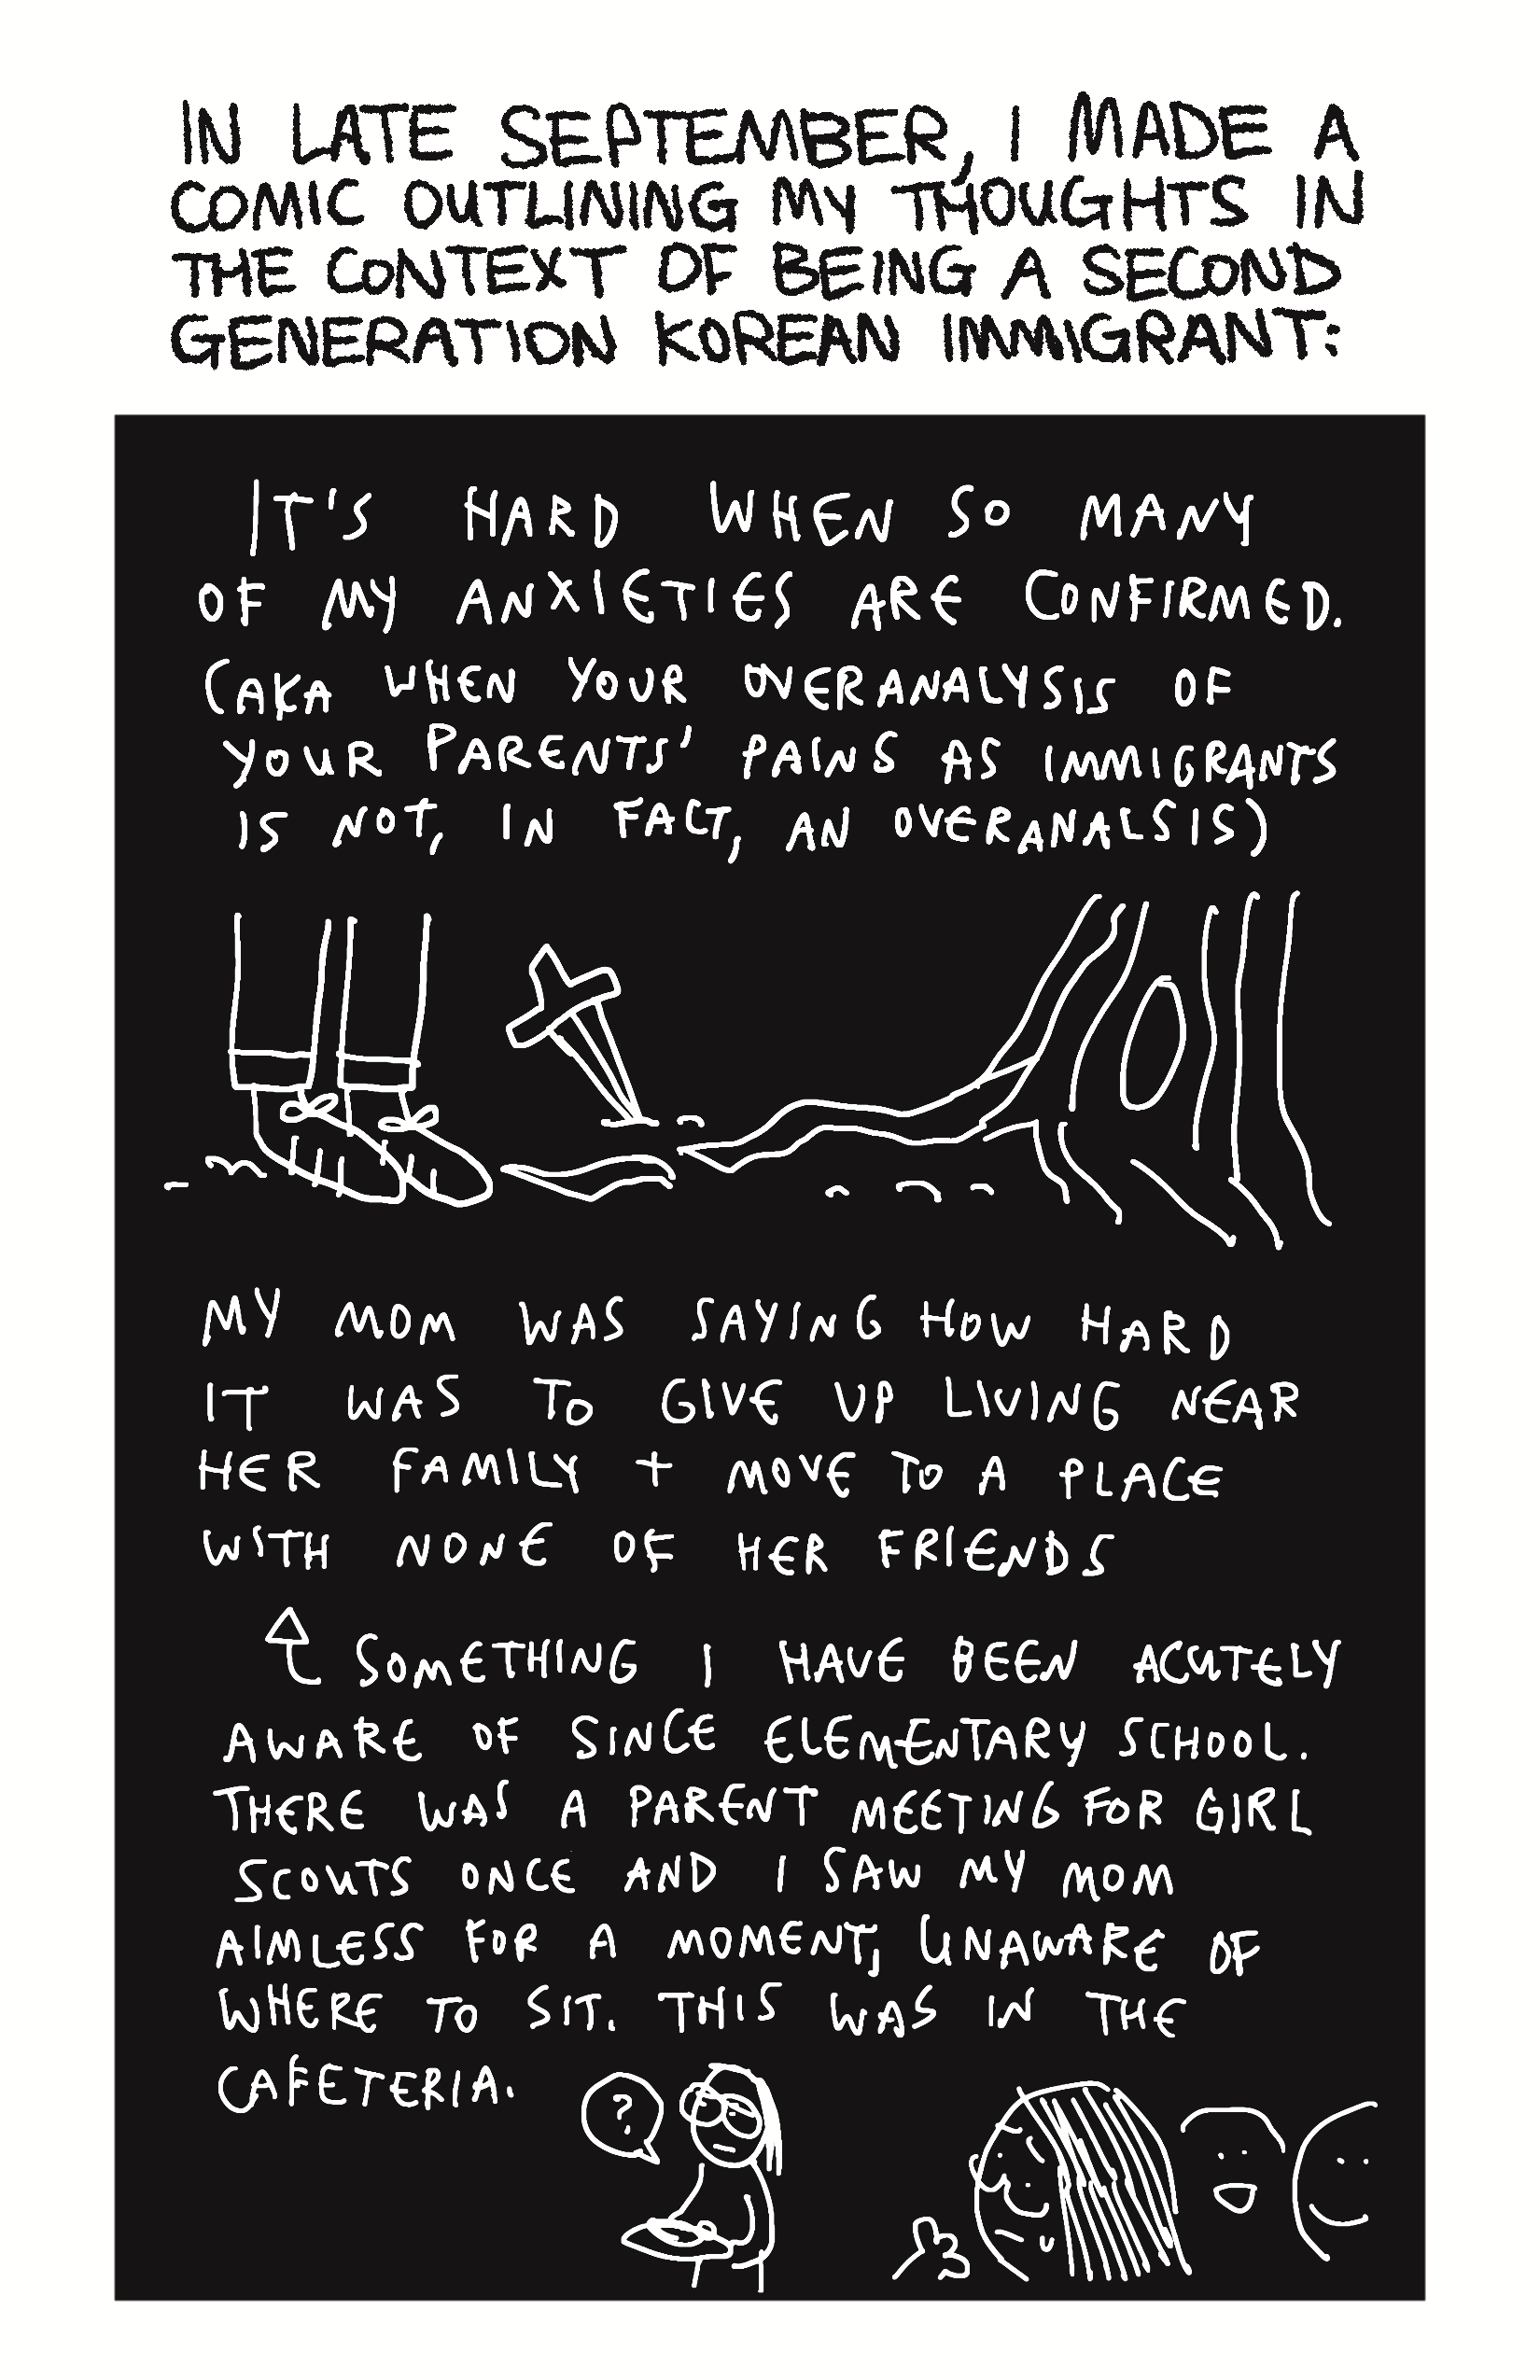 IN LATE SEPTEMBER, I MADE A
COMIC OUTLINING MY THOUGHTS IN
THE CONTEXT OF BEING A SECOND
GENERATION KOREAN IMMIGRANT:
IT'S HARD WHEN SO MANY
OF MY ANXIETIES ARE CONFIRMED.
(AKA WHEN YOUR OVERANALYSIS OF
YOUR PARENTS' PAINS AS IMMIGRANTS
IS NOT, IN FACT, AN OVERANALSIS)
MY MOM WAS SAYING HOW HARD
IT WAS TO GIVE UP LIVING NEAR
HER FAMILY + MOVE TO A PLACE
WITH NONE OF HER FRIENDS
SOMETHING I HAVE BEEN ACUTELY
AWARE OF SINCE ELEMENTARY SCHOOL.
THERE WAS A PARENT MEETING FOR GIRL
SCOUTS ONCE AND I SAW MY MOM
AIMLESS FOR A MOMENT, UNAWARE OF
WHERE TO SIT. THIS WAS IN THE
CAFETERIA.
?